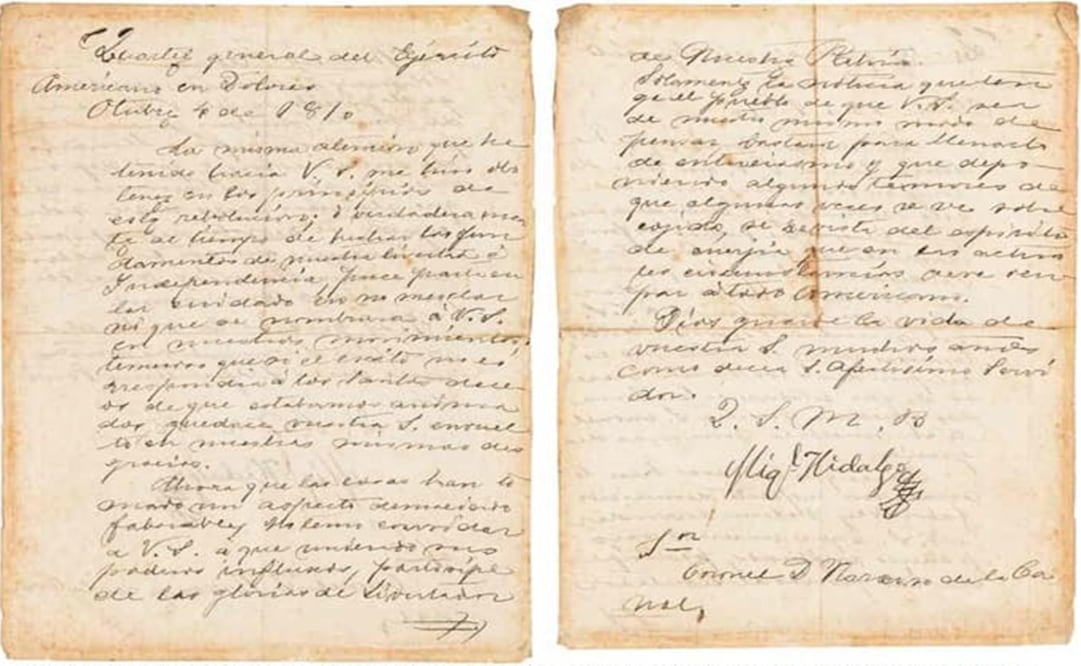 Quartel general del Ejército
Americano en Dolores
Otubre 4 de 1810
La misma atención que he
tenido hacia V. S. me hiso obs
tener en los principios de
esta rebolución; i verdaderamen
te al tiempo de hechar los fun
damentos de nuestra livertad é
Independencia, puce particu
lar cuidado en no mesclar
ni que se nombrara á V. S.
en nuestros movimientos,
temeroso que si el ecsito no co
rrespondia á los santos dece
os de que estabamos anima
dos quedace vuestra S. envuel
to en nuestras mismas des
gracias.
Ahora que las cosas han to
mado un aspecto demaciado
faborable, no temo convidar
a V. S. a que uniendo sus
poderos influxos, participe
de las glorias de Livertador
de Nuestra Patria.
Solamente la noticia que ten
ga el pueblo de que V. S. sea
de nuestro mismo modo de
pensar, bastará para llenarlo
de entuciasmo y que depo
niendo algunos temores de
que algunas veces se ve sobre
cojido, se revista del espiritu
de energia que en las actua
les circunstancias deve ocu
par á todo Americano.
Dios guarde la vida de
vuestra S. muchos años
como decea S. Afectisimo Servi
dor.
Q. S. M. B
Mig.l Hidalgo
Sor
Coronel D Narciso de la Ca
nal,